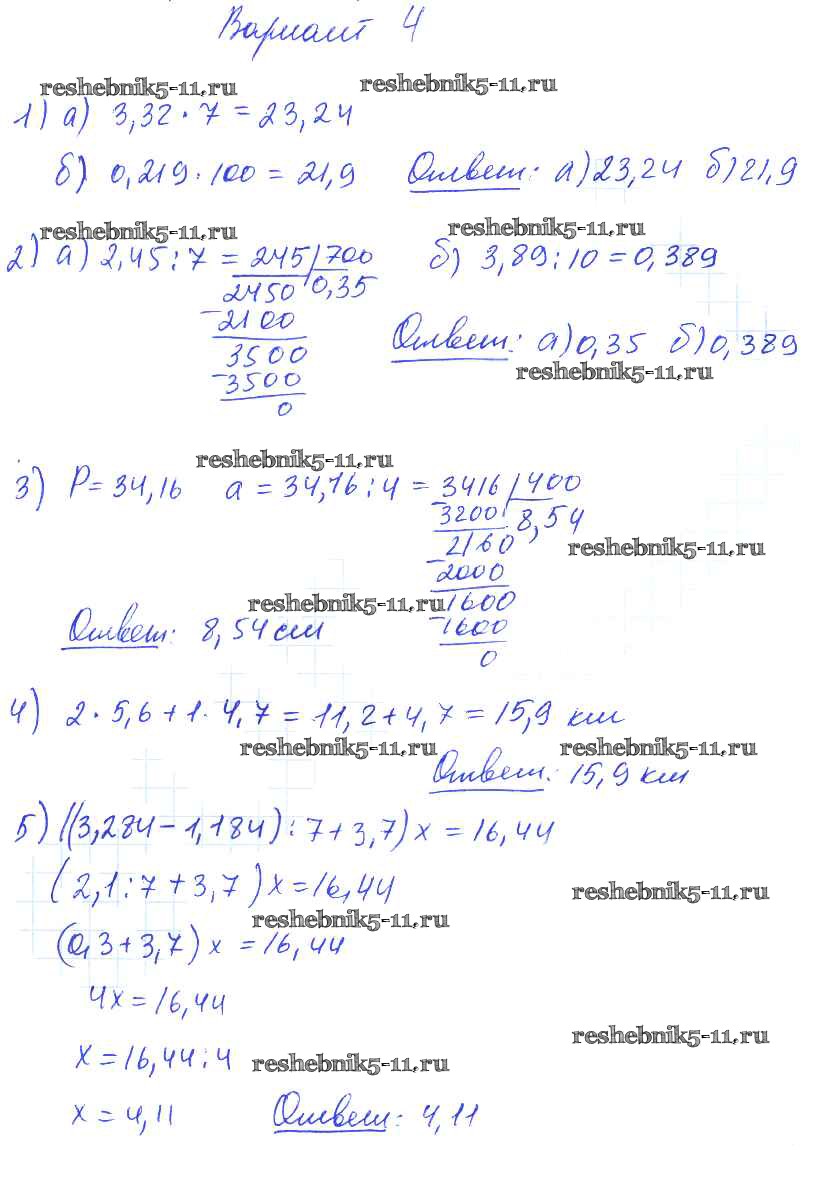 Вариант 4
reshebnik5-11.ru reshebnik5-11.ru
1) а) 3,32 · 7 = 23,24
б) 0,219 · 100 = 21,9 Ответ: а) 23,24 б) 21,9
reshebnik5-11.ru reshebnik5-11.ru
2) а) 2,45 : 7 = 245 | 700 б) 3,89 : 10 = 0,389
2450 0,35
- 2100
Ответ: а) 0,35 б) 0,389
3500
reshebnik5-11.ru
- 3500
0
reshebnik5-11.ru
3) P = 34,16 a = 34,16 : 4 = 3416 | 400
- 3200 8,54
2160 reshebnik5-11.ru
- 2000
reshebnik5-11.ru 1600
Ответ: 8,54 см - 1600
0
4) 2 · 5,6 + 1 · 4,7 = 11,2 + 4,7 = 15,9 км
reshebnik5-11.ru reshebnik5-11.ru
Ответ: 15,9 км
5) ((3,284 - 1,184) : 7 + 3,7) x = 16,44
(2,1 : 7 + 3,7) x = 16,44 reshebnik5-11.ru
reshebnik5-11.ru
(0,3 + 3,7) x = 16,44
4x = 16,44
reshebnik5-11.ru
x = 16,44 : 4 reshebnik5-11.ru
x = 4,11 Ответ: 4,11